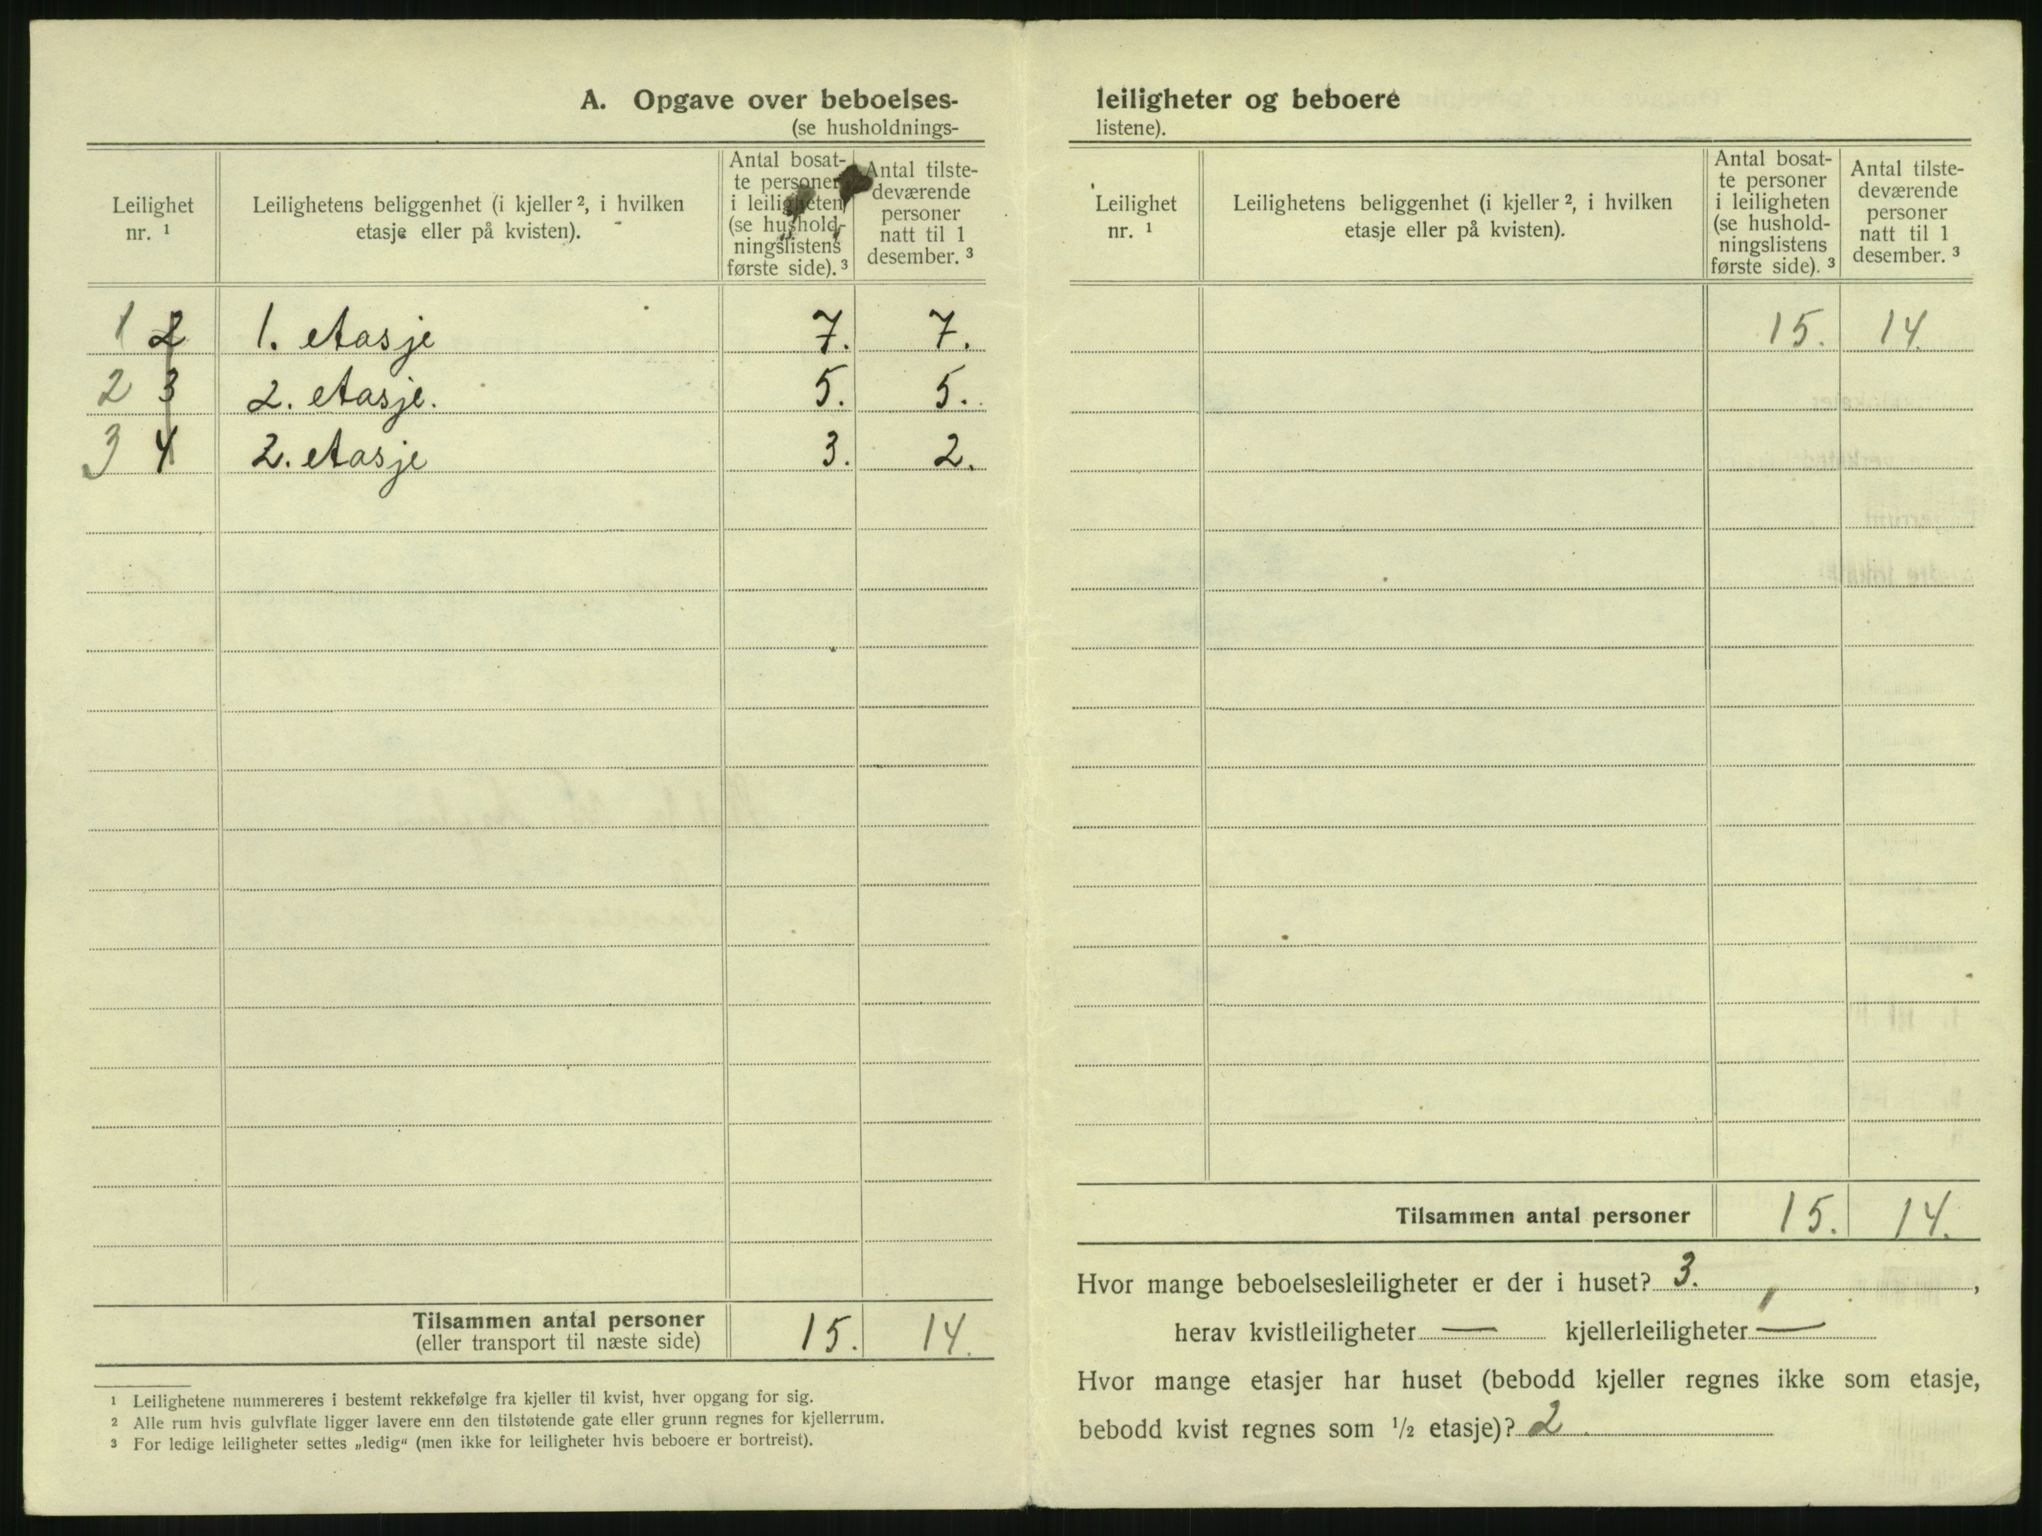 A. Opgave over beboelses-
(se husholdnings-
Leilighet nr. ¹
Leilighetens beliggenhet (i kjeller ², i hvilken
etasje eller på kvisten).
Antal bosat-
te personer
i leiligheten
(se hushold-
ningslistens
første side). ³
Antal tilste-
deværende
personer
natt til 1
desember. ³
1 2 1. etasje 7. 7.
2 3 2. etasje. 5. 5.
3 4 2. etasje 3. 2.
Tilsammen antal personer
(eller transport til næste side) 15. 14.
¹ Leilighetene nummereres i bestemt rekkefølge fra kjeller til kvist, hver opgang for sig.
² Alle rum hvis gulvflate ligger lavere enn den tilstøtende gate eller grunn regnes for kjellerrum.
³ For ledige leiligheter settes „ledig" (men ikke for leiligheter hvis beboere er bortreist).
leiligheter og beboere
listene).
Leilighet nr. ¹
Leilighetens beliggenhet (i kjeller ², i hvilken
etasje eller på kvisten).
Antal bosat-
te personer
i leiligheten
(se hushold-
ningslistens
første side). ³
Antal tilste-
deværende
personer
natt til 1
desember. ³
15. 14.
Tilsammen antal personer 15. 14.
Hvor mange beboelsesleiligheter er der i huset? 3. ,
herav kvistleiligheter — kjellerleiligheter —
Hvor mange etasjer har huset (bebodd kjeller regnes ikke som etasje,
bebodd kvist regnes som ½ etasje)? 2